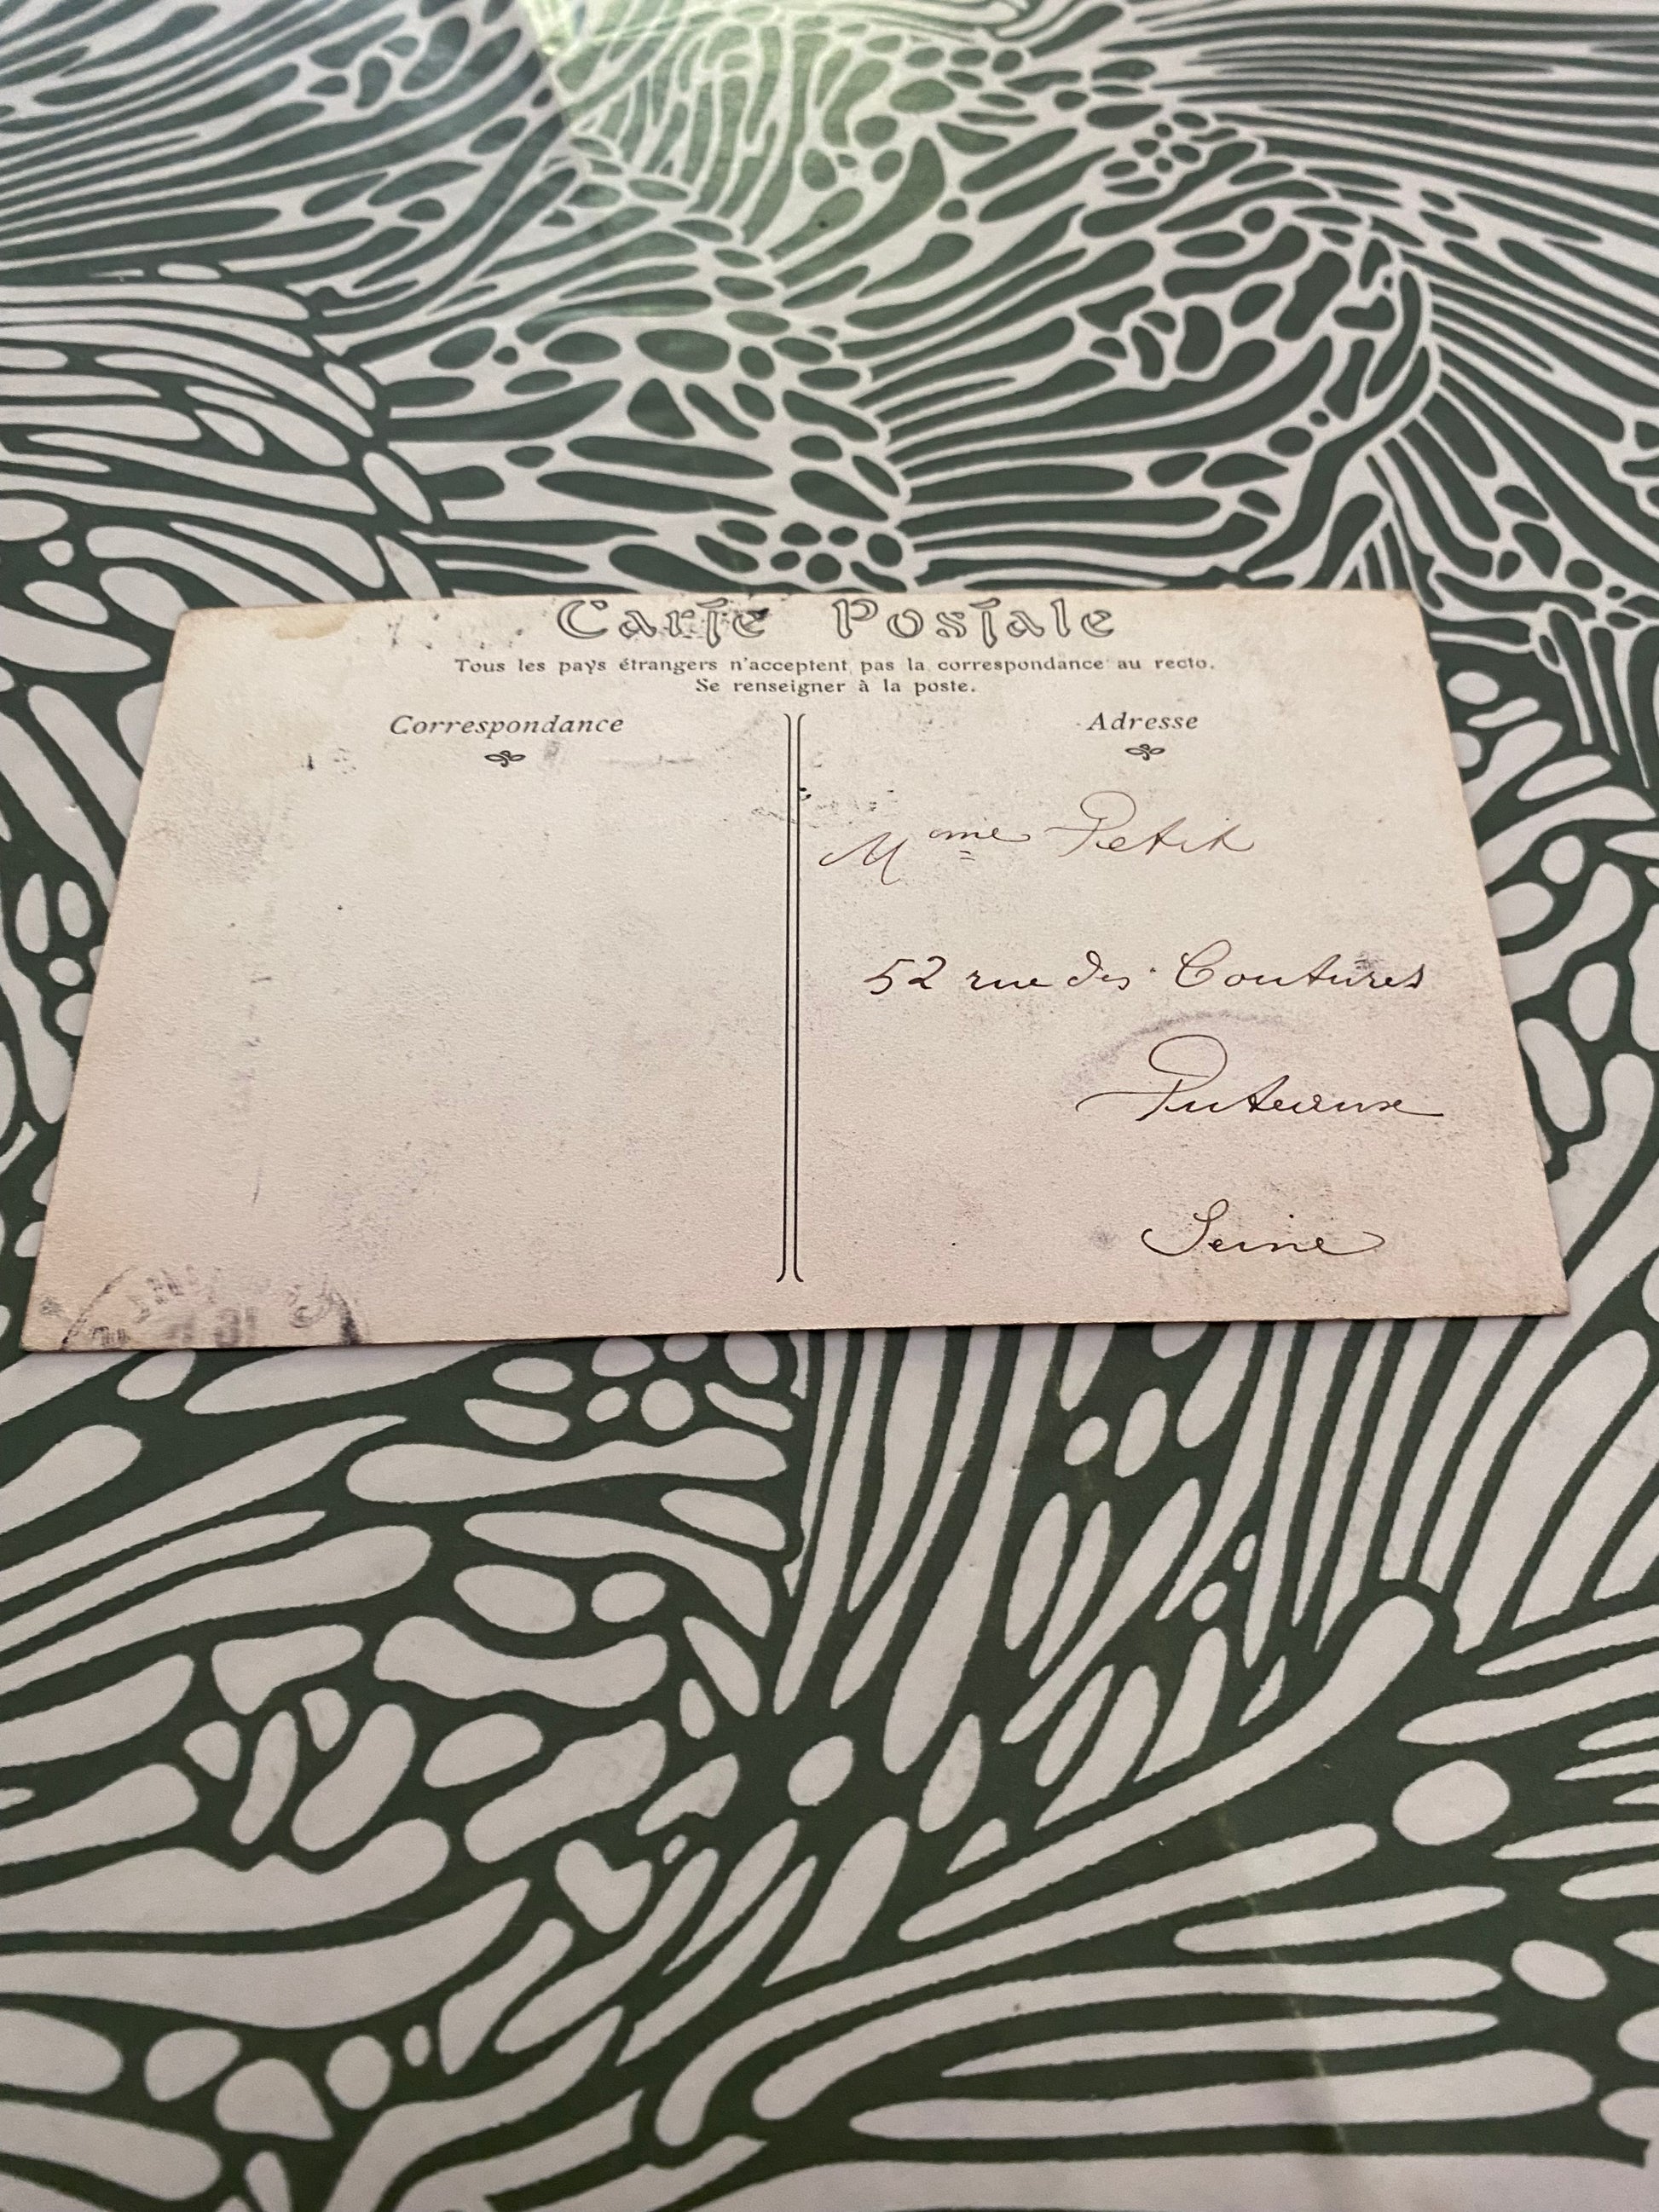 Carte Postale
Tous les pays étrangers n'acceptent pas la correspondance au recto.
Se renseigner à la poste.
Correspondance
Adresse
Mme Petit
52 rue des Coutures
Puteaux
Seine